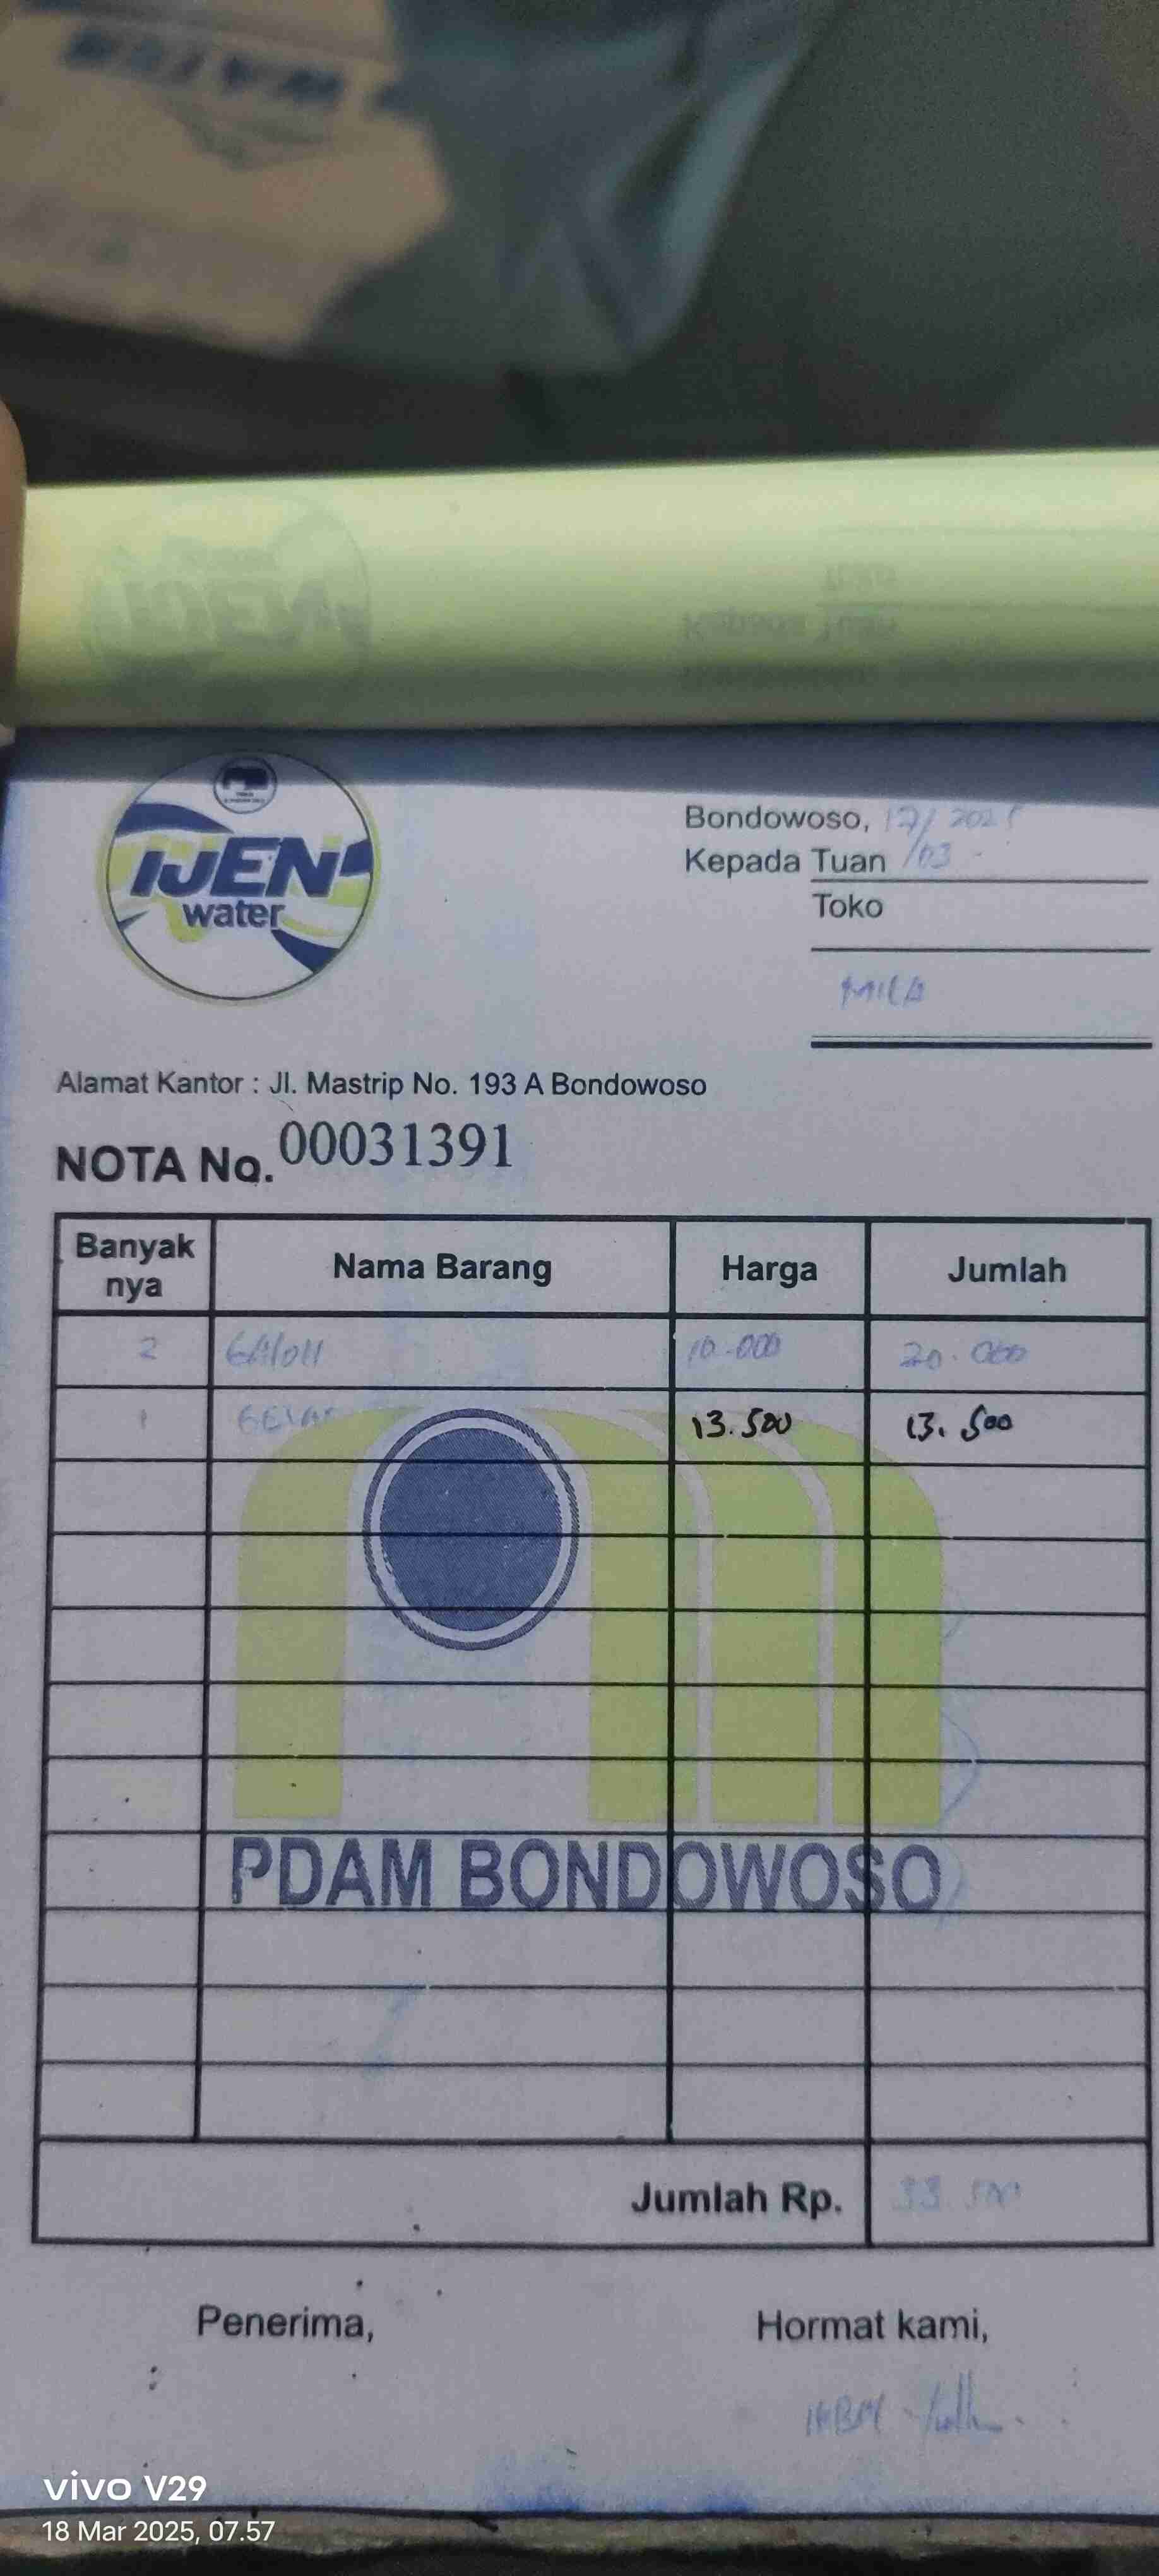 WATER
IJEN
water
Bondowoso, 17/03 2025
Kepada Tuan
Toko
MILA
Alamat Kantor : Jl. Mastrip No. 193 A Bondowoso
NOTA No. 00031391
Banyak nya Nama Barang Harga Jumlah
2 GAlON 10.000 20.000
1 GELAS 13.500 13.500
PDAM BONDOWOSO
Jumlah Rp. 33.500
Penerima, Hormat kami,
vivo V29
18 Mar 2025, 07.57